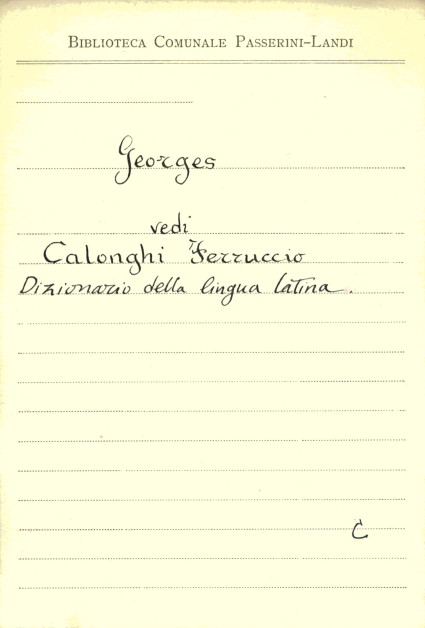 Biblioteca Comunale Passerini-Landi
Georges
vedi
Calonghi Ferruccio
Dizionario della lingua latina.
C